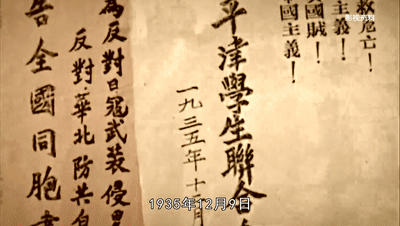 影视资料
救危亡！
主義！
國賊！
國主義！
平津學生聯合
一九三五年十二月
為反對日寇武装侵
反對華北防共自
告全國同胞書
1935年12月9日